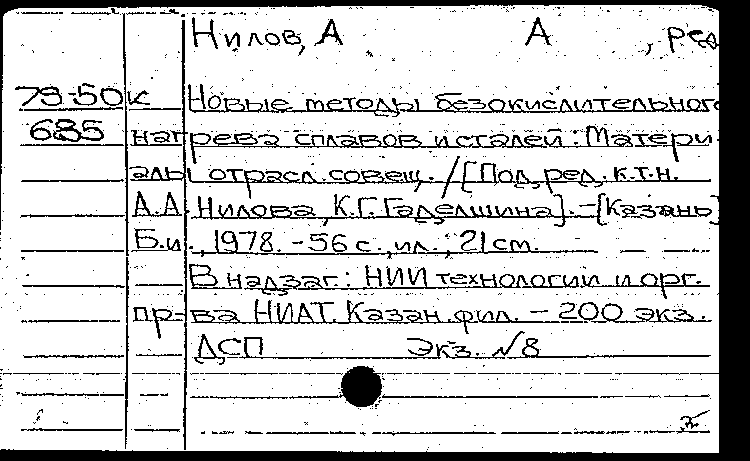 Нилов, А А , ред
79-50 к Новые методы безокислительного
685 нагрева сплавов и сталей: Матери-
алы отрасл. совещ. / [Под ред. к.т.н.
А.А. Нилова, К.Г. Гаделшина]. - [Казань]
Б.и., 1978. - 56 с., ил.; 21 cm.
В надзаг.: НИИ технологии и орг.
пр-ва НИАТ. Казан. фил. - 200 экз.
ДСП Экз. №8